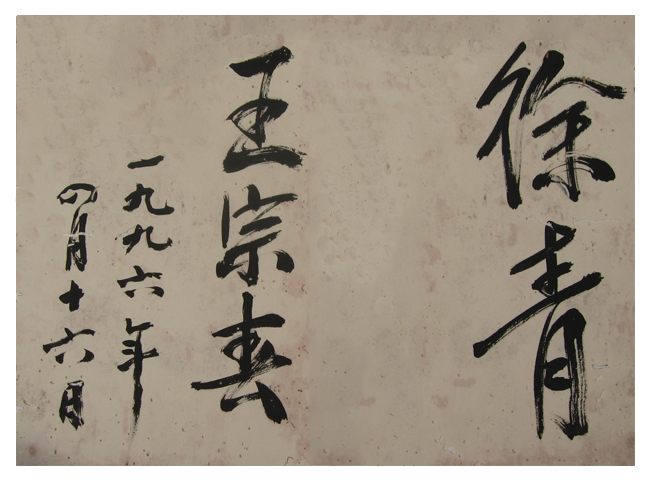 徐青
王宗春
一九九六年
四月十六日